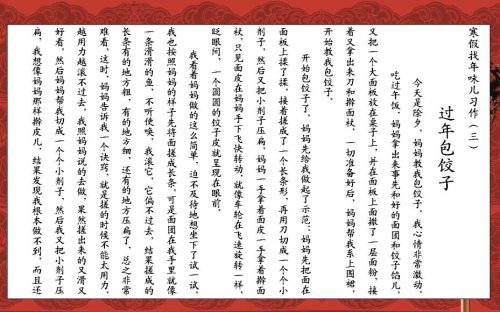 寒假找年味儿习作（三）
过年包饺子
今天是除夕，妈妈教我包饺子，我心情非常激动。
吃过午饭，妈妈拿出来事先和好的面团和饺子馅儿，
又把一个大面板放在桌子上，并在面板上面撒了一层面粉，接
着又拿出来刀和擀面杖，一切准备好后，妈妈帮我系上围裙，
开始教我包饺子。
开始包饺子了，妈妈先给我做起了示范：妈妈先把面在
面板上揉了揉，接着搓成了一个长条形，再用刀切成一个个小
剂子，然后又把小剂子压扁，妈妈一手拿着面皮一手拿着擀面
杖，只见面皮在妈妈手下飞快转动，就像车轮在飞速旋转一样，
眨眼间，一个圆圆的饺子皮就呈现在眼前。
我看着妈妈做的这么简单，迫不及待地想坐下了试一试，
我也按照妈妈的样子先将面搓成长条，可是面团在我手里就像
一条滑滑的鱼，不听使唤，我滚它，它偏不过去，结果搓成的
长条有的地方粗，有的地方细，还有的地方压扁了，总之非常
难看，这时，妈妈告诉我一个诀窍，就是搓的时候不能太用力，
越用力越滚不过去，我照妈妈说的去做，果然搓出来的又滑又
好看，然后妈妈帮我切成一个个小剂子，然后我又把小剂子压
扁，我想像妈妈那样擀皮儿，结果发现我根本做不到，而且还